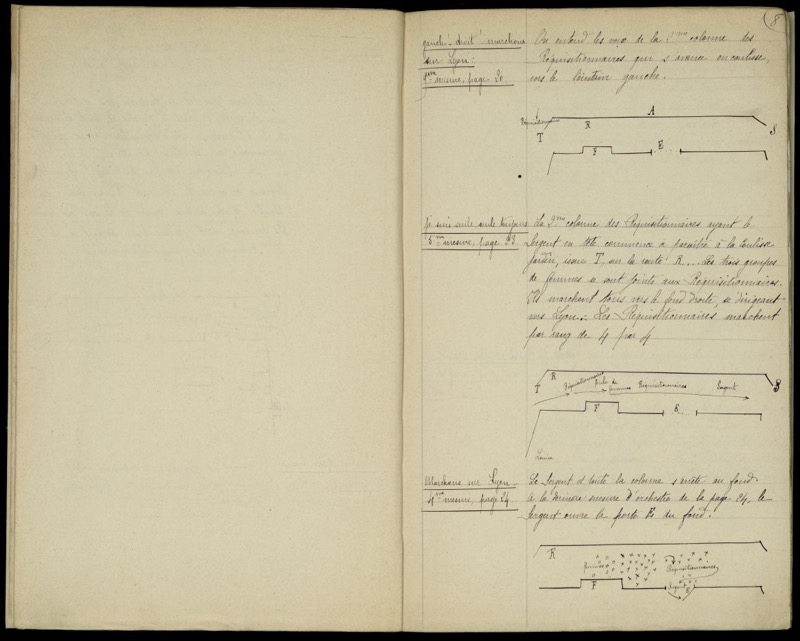 8
gauche! droit! marchons
sur Lyon.
1ère mesure, page 20.
On entend les voix de la 2me colonne des
Réquisitionnaires qui s'avance en coulisse,
vers le lointain gauche.
A
R
S
T
F
E
Je suis seule, seule toujours
5me mesure, page 23
La 2me colonne des Réquisitionnaires ayant le
Sergent en tête commence à paraître à la coulisse
Jardin, issue T, sur la route R... Les trois groupes
de femmes se sont joints aux Réquisitionnaires.
Ils marchent tous vers le fond droite, se dirigeant
vers Lyon. Les Réquisitionnaires marchent
par rang de 4 par 4
R
T
Réquisitionnaires
femmes
Réquisitionnaires
Sergent
S
F
E
Marchons sur Lyon
4me mesure, page 24
Le Sergent et toute la colonne s'arrête au fond.
à la dernière mesure d'orchestre de la page 24, le
Sergent ouvre la porte E du fond.
R
femmes
Réquisitionnaires
F
Sergent
E